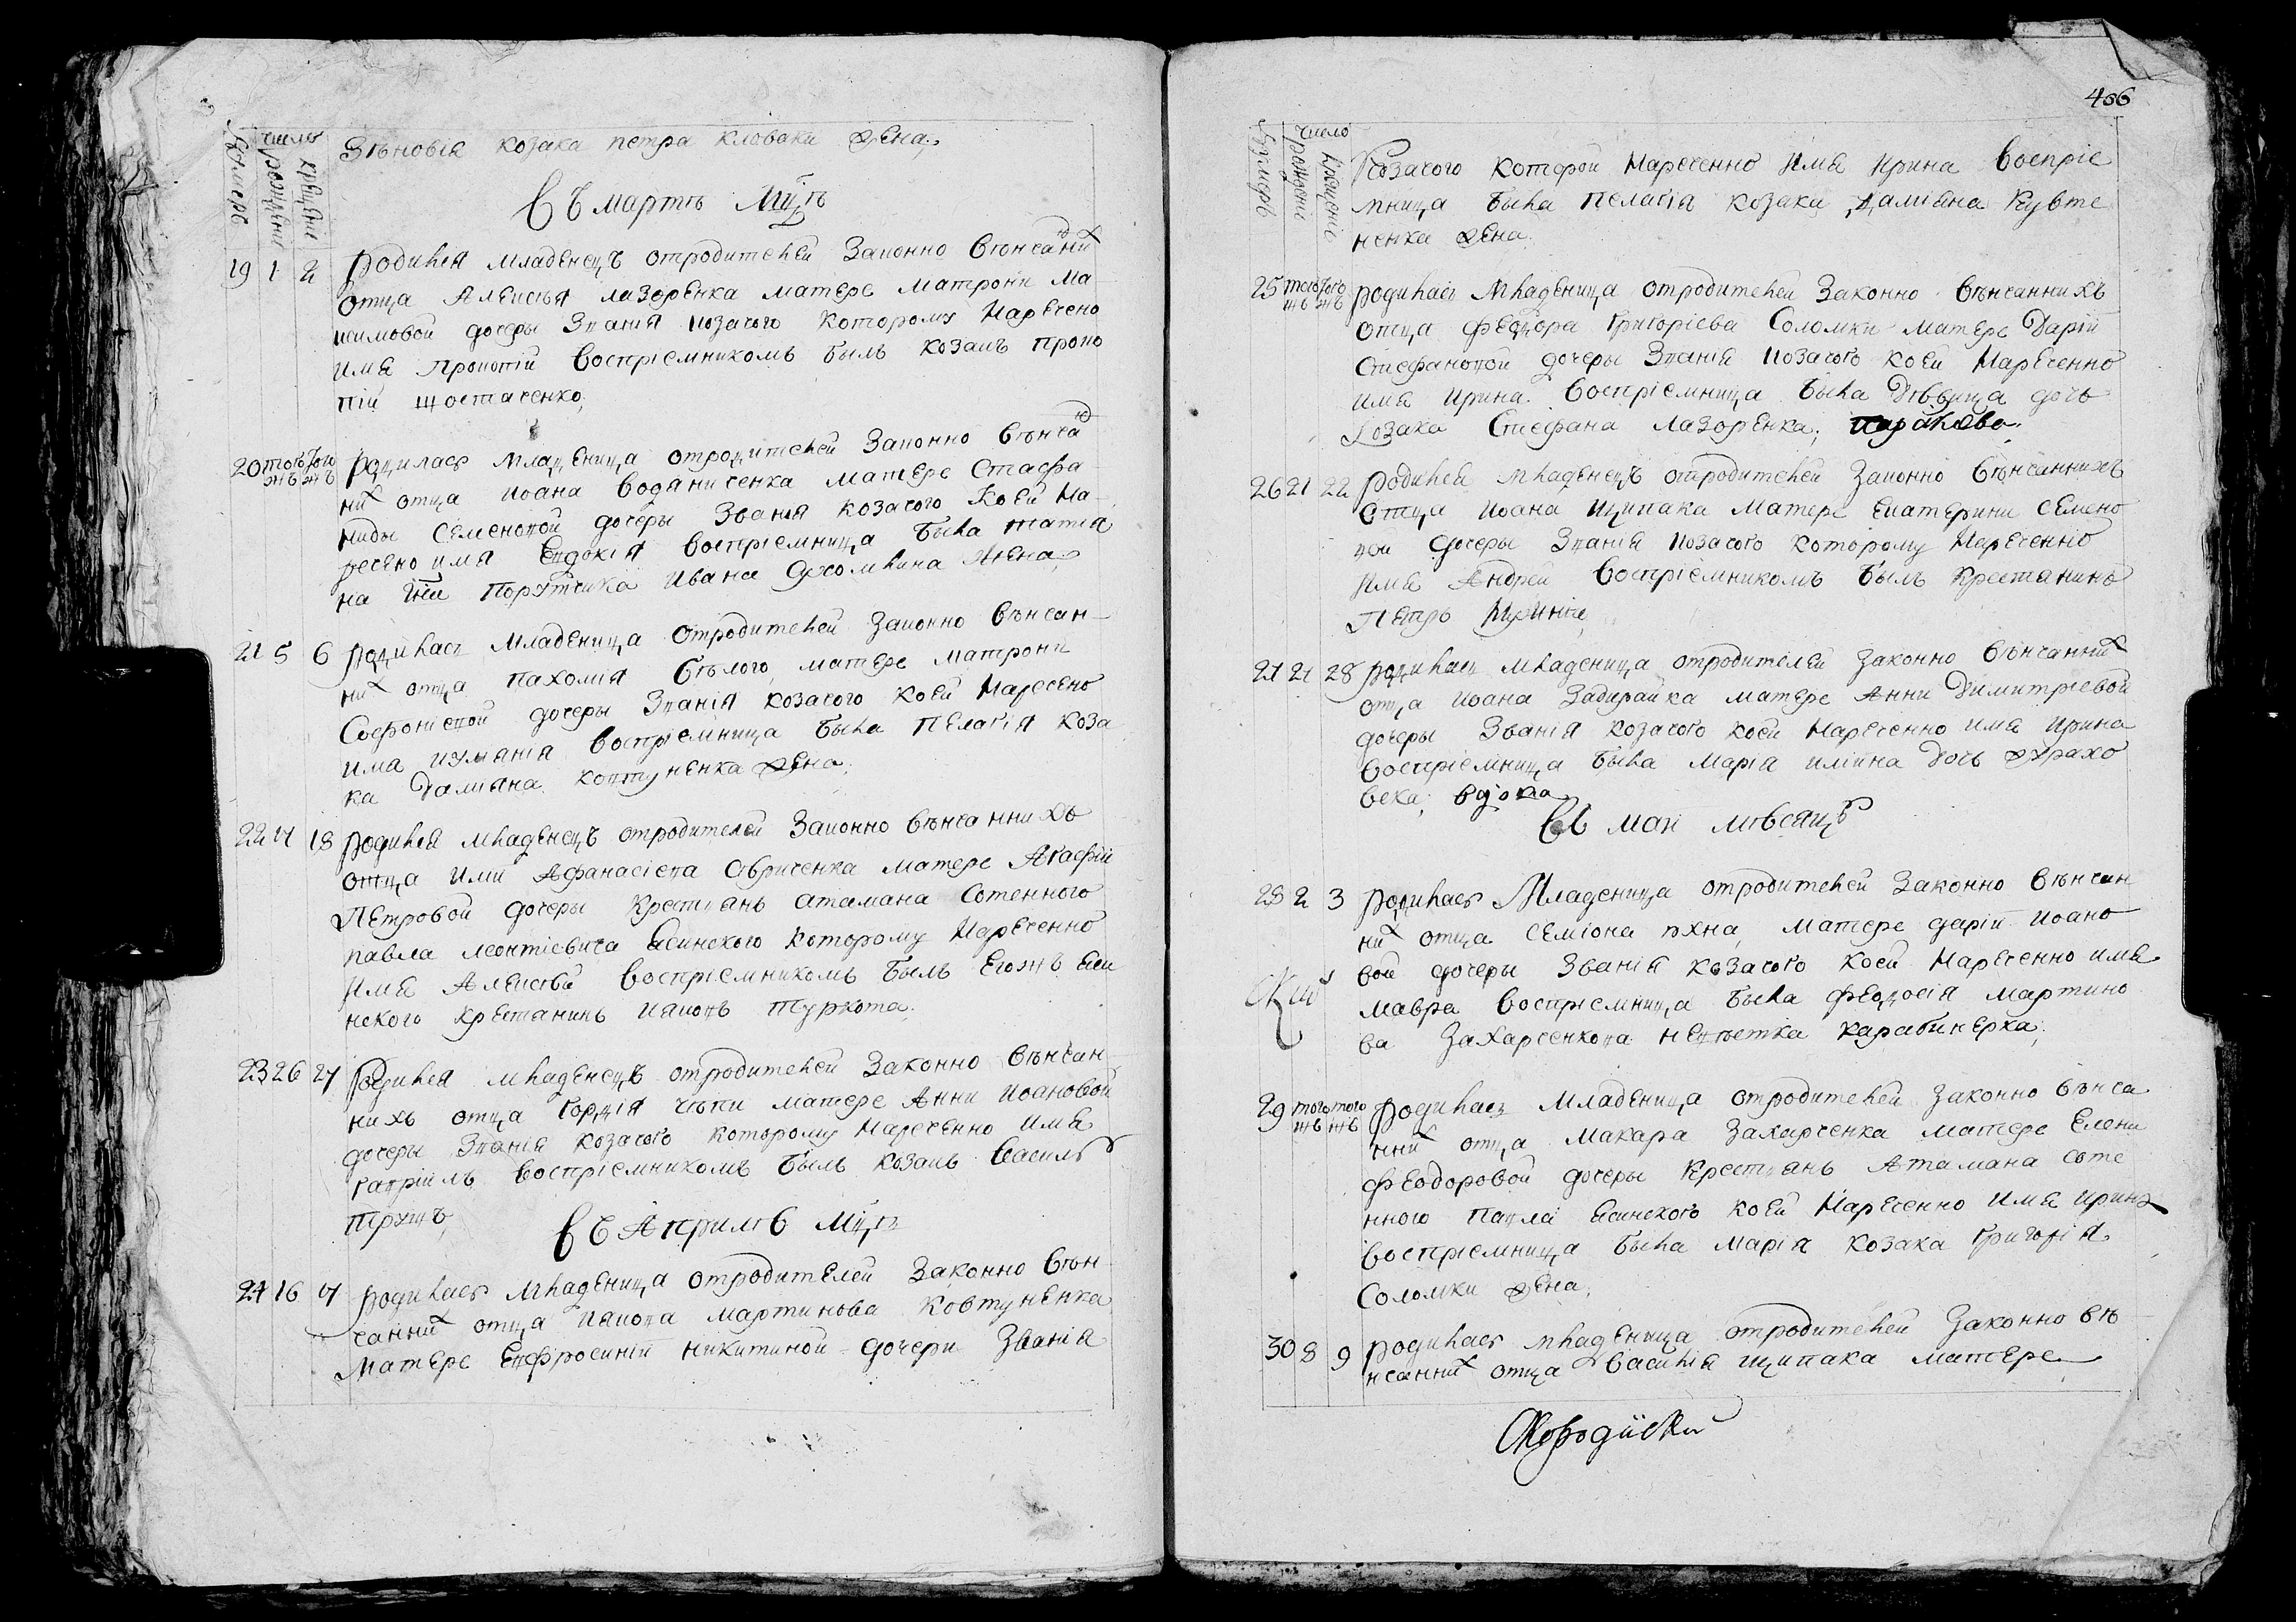 Число
Нумеръ рожденія крещенія
Зѣновія козака петра кловаки жена;
Въ мартѣ мцѣ
19 1 2 родился младенецъ отродителей законно вѣнчаних
отца Алексѣя лазоренка матере матрони ма
ксимовой дочеры Званія козачого которому наречено
имя прокопій воспріемникомъ былъ козакъ проко
пій шостаченко;
20 тогожъ тогожъ родилась младеница отродителей законно вѣнча
них отца иоана водяниченка матере стефа
ниды семеновой дочеры званія козачого коей на
речено имя Евдокія воспріемница была татія
на порутчика ивана жена;
21 5 6 родилась младеница отродителей законно вѣнчан
них отца пахомія бѣлого матере матрони
софоніевой дочеры Званія козачого коей наречено
имя иуліанія воспріемница была пелагія коза
ка даміяна ковтуненка жена;
22 17 18 родился младенецъ отродителей законно вѣнчаннихъ
отца Афанасіева матере Агафіи
петровой дочеры крестянъ атамана сотенного
павла леонтіевича Ясинского которому нареченно
имя Алексѣй воспріемникомъ былъ егожъ яси
нского крестанинъ иаковъ туркота;
23 26 27 родился младенецъ отродителей законно вѣнчан
нихъ отца гордія чѣпи матере Анни иоановой
дочеры Званія козачого которому нареченно имя
гавріилъ воспріемникомъ былъ козакъ василь
трушъ
Въ Априлѣ мцѣ
24 16 17 родилась младеница отродителей законно вѣн
чанних отца иакова мартинова ковтуненка
матере Евфросиніи никитиной дочери званія
406
Число
Нумеръ рожденіе крещеніе
козачого которой нареченно имя ирина воспріе
мница была пелагія козака даміяна кувту
ненка жена
25 тогожъ тогожъ родилась младеница отродителей законно вѣнчаннихъ
отца феодора григоріева соломки матере даріи
стефановой дочеры Званія козачого коей нареченно
имя ирина воспріемница была дѣвица дочь
козака стефана лазоренка;
26 21 22 родился младенецъ отродителей законно вѣнчаннихъ
отца иоана щипака матере екатерини семено
вой дочеры Званія козачого которому нареченно
имя Андрей воспріемникомъ былъ крестанинъ
петръ
27 21 28 родилась младеница отродителей законно вѣнчанних
отца иоана задирайка матере Анни димитріевой
дочеры Званія козачого коей нареченно имя ирина
воспріемница была марія иліина дочь
вдова
Въ маи мѣсяцѣ
28 2 3 родилась младеница отродителей законно вѣнчан
них отца семіона матере даріи иоано
вой дочеры званія козачого коей нареченно имя
мавра воспріемница была феодосія мартино
ва захарченкова карабинерка;
29 тогожъ тогожъ родилась младеница отродителей законно вѣнча
нних отца макара захарченка матере елени
феодоровой дочеры крестянъ атамана соте
нного павла ясинского коей нареченно имя ирина
воспріемница была марія козака григорія
соломки жена;
30 8 9 родилась младеница отродителей законно вѣ
нчанних отца василія щипака матере